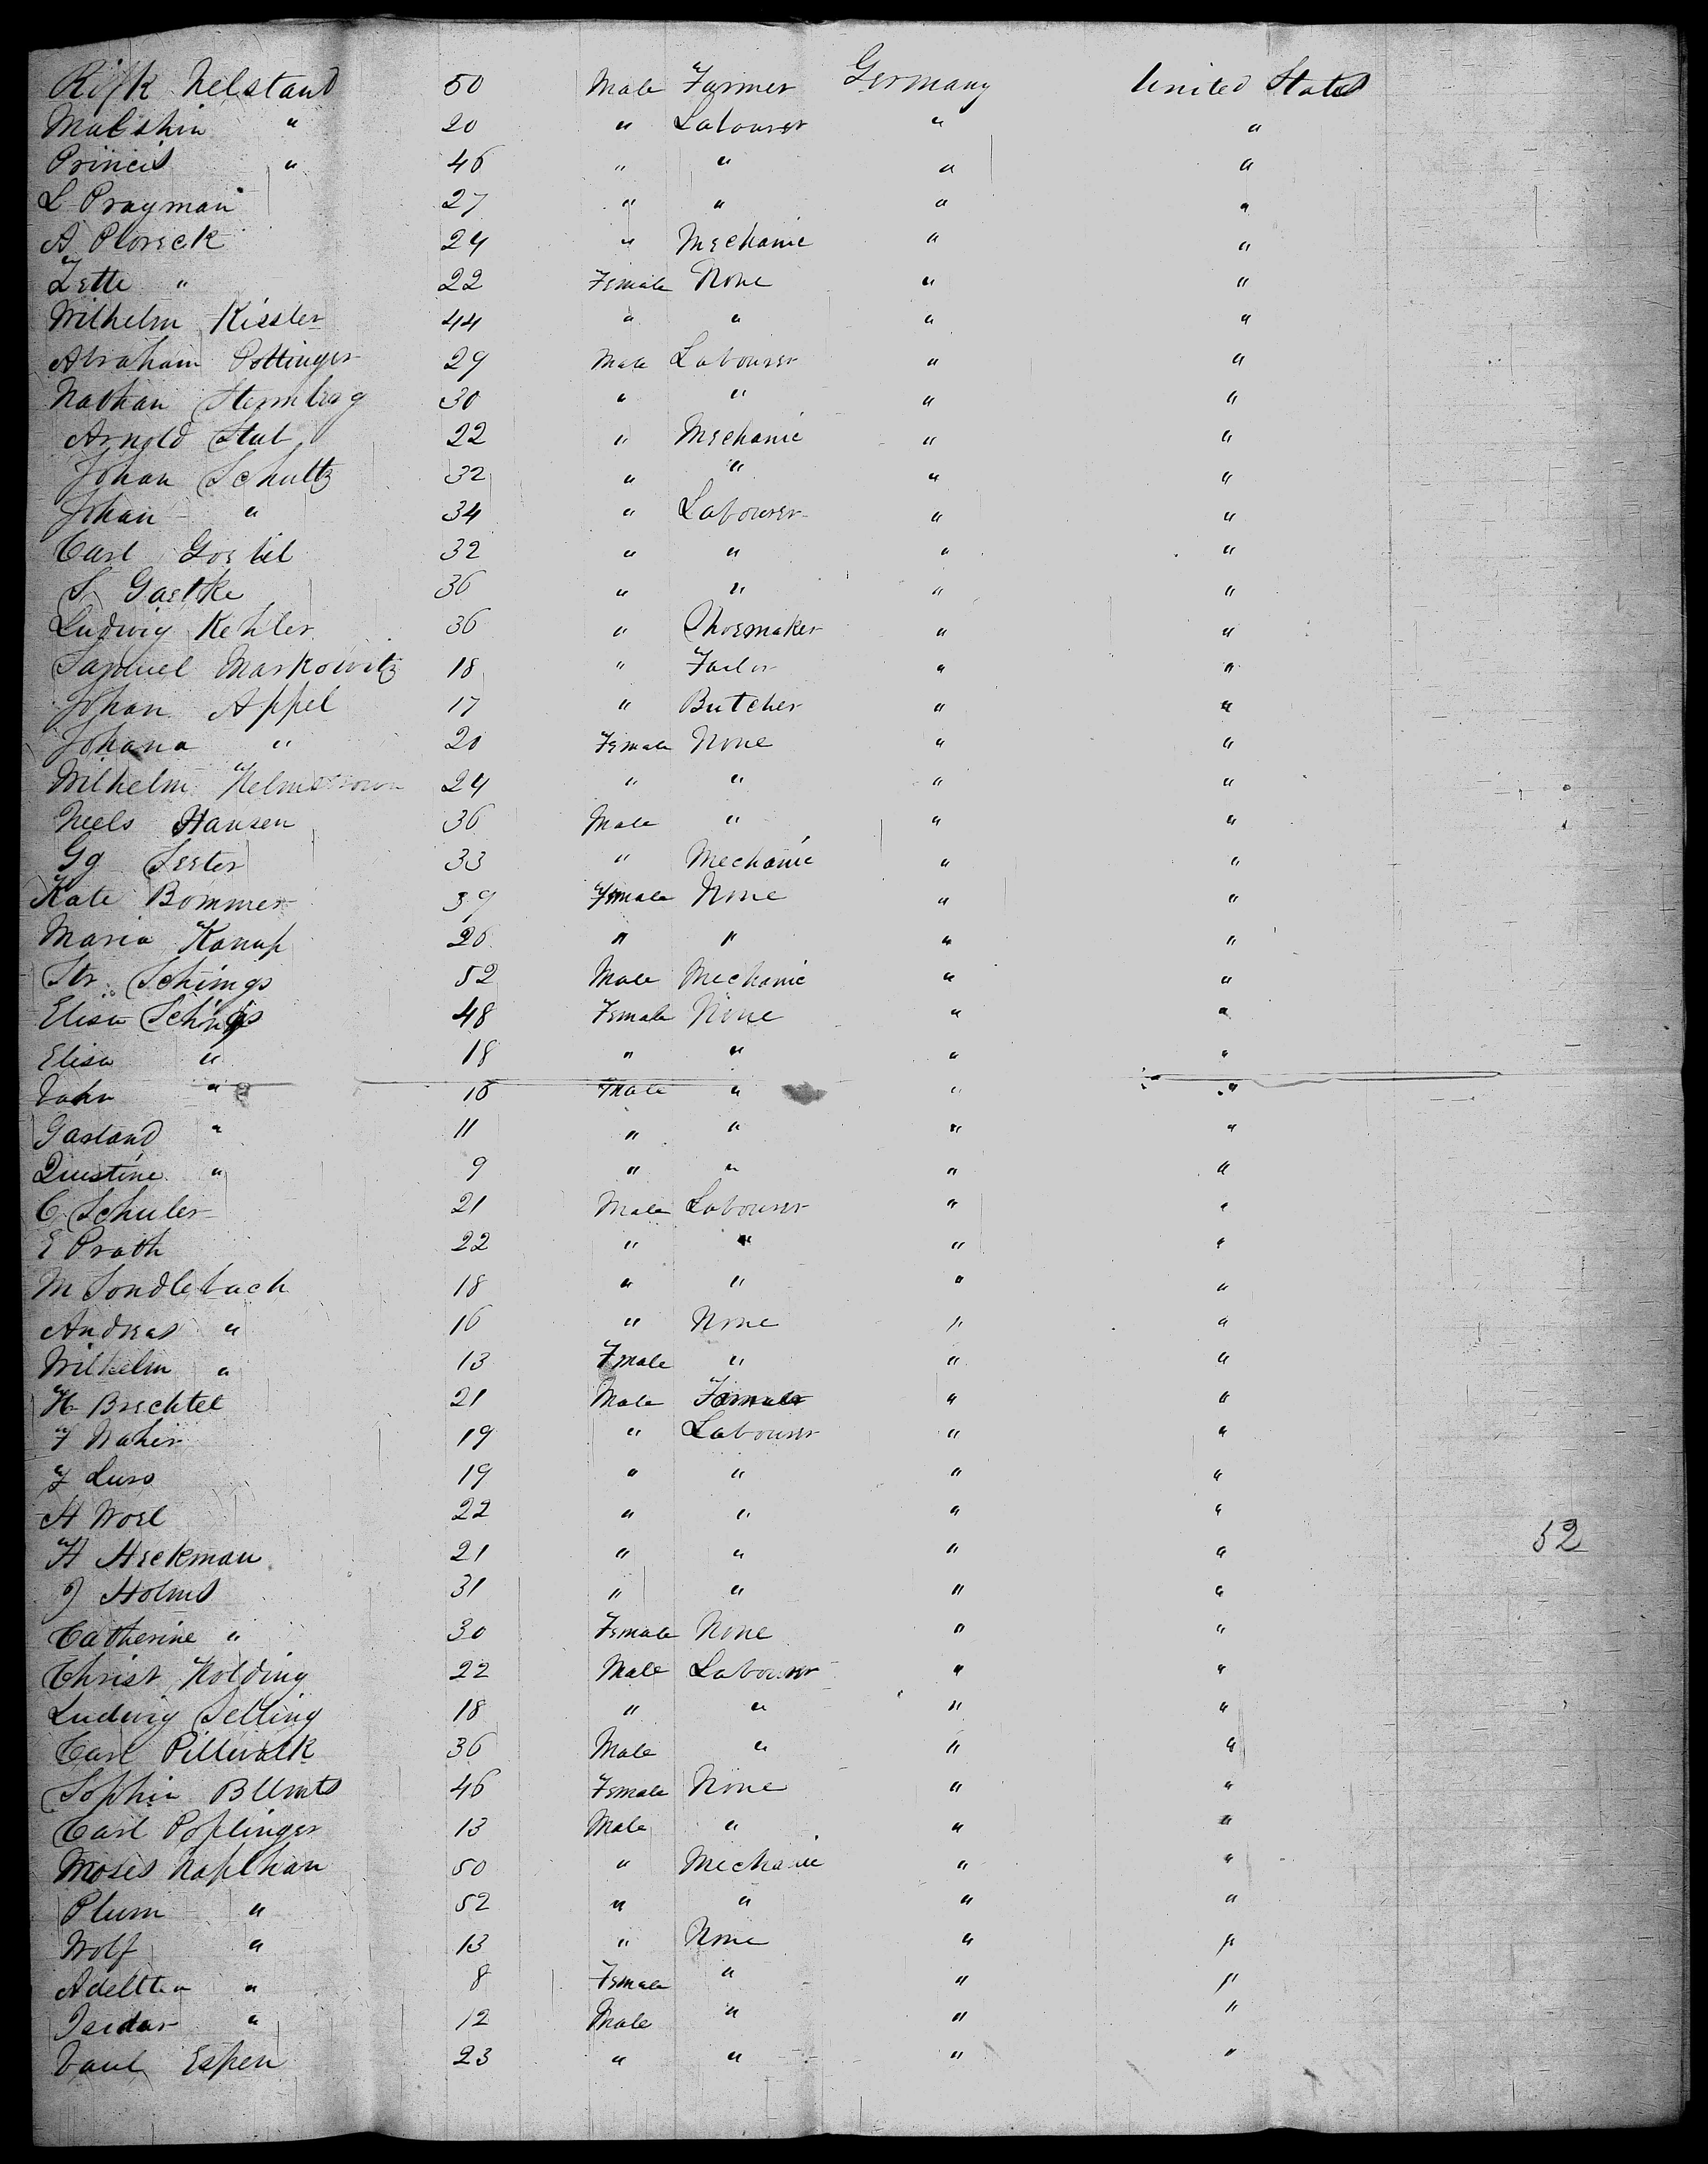 Rifk Nelstand 50 Male Farmer Germany United States
Malshin " 20 " Labourer " "
Princis " 46 " " " "
L Prayman 27 " " " "
A Ploreck 24 " Mechanic " "
Zette " 22 Female None " "
Wilhelm Kissler 44 " " " "
Abraham Pottinger 29 Male Labourer " "
Nathan Sternberg 30 " " " "
Arnold Stub 22 " Mechanic " "
Johan Schultz 32 " " " "
Johan " 34 " Labourer " "
Carl Goebel 32 " " " "
S Gaetke 36 " " " "
Ludwig Kehler 36 " Shoemaker " "
Samuel Markowitz 18 " Tailor " "
Johan Appel 17 " Butcher " "
Johana " 20 Female None " "
Wilhelm 24 " " " "
Neels Hansen 36 Male " " "
Gg Seeter 33 " Mechanic " "
Kate Bommer 39 Female None " "
Maria Kanup 26 " " " "
Str. Schings 52 Male Mechanic " "
Elisa Schings 48 Female None " "
Elisa " 18 " " " "
John " 16 Male " " "
Garland " 11 " " " "
Questine " 9 " " " "
C Schuler 21 Male Labourer " "
E Prath 22 " " " "
M Sondlebach 18 " " " "
Andreas " 16 " None " "
Wilhelm " 13 Fmale " " "
H Brechtel 21 Male Farmer " "
F Naher 19 " Labourer " "
F Lurs 19 " " " "
H Woel 22 " " " "
H Heckman 21 " " " "
J Holms 31 " " " " 52
Catherine " 30 Female None " "
Christ Kolding 22 Male Labourer " "
Ludwig Selling 18 " " " "
Carl Pillwalk 36 Male " " "
Sophia 46 Female None " "
Carl Poplinger 13 Male " " "
Moses Naplhan 50 " Mechanic " "
Plum " 52 " " " "
Wolf " 13 " None " "
Adeltta " 8 Female " " "
Isidar " 12 Male " " "
Paul Espen 23 " " " "